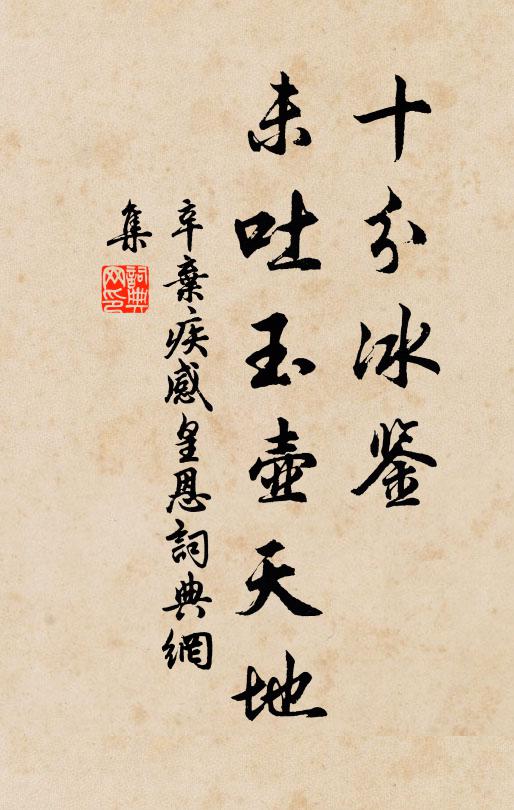 十分冰鉴
未吐玉壶天地
辛棄疾感皇恩詞典網
集
詞典
网印